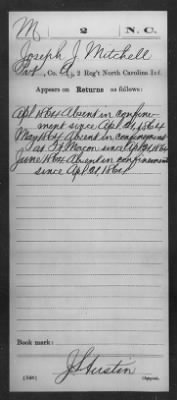 M 2 N.C.
Joseph J Mitchell
Pvt, Co. , 2 Reg't North Carolina Inf.
Appears on Returns as follows:
Apl 1864 Absent in confine-
ment since Apl 21, 1864
May 1864 Absent in confinement
at Ft Macon since Apl 21, 1864
June 1864 Absent in confinement
since Apl 21, 1864
Book mark:
(546) Copyist.